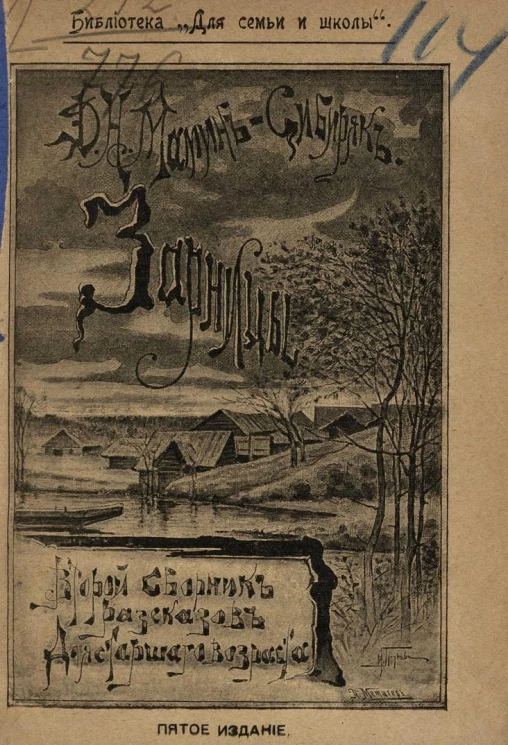 Библіотека „Для семьи и школы“.
114
776
Д. Н. Маминъ-Сибирякъ.
Зарницы
Второй сборникъ
разсказовъ
для старшаго возраста
ПЯТОЕ ИЗДАНІЕ.